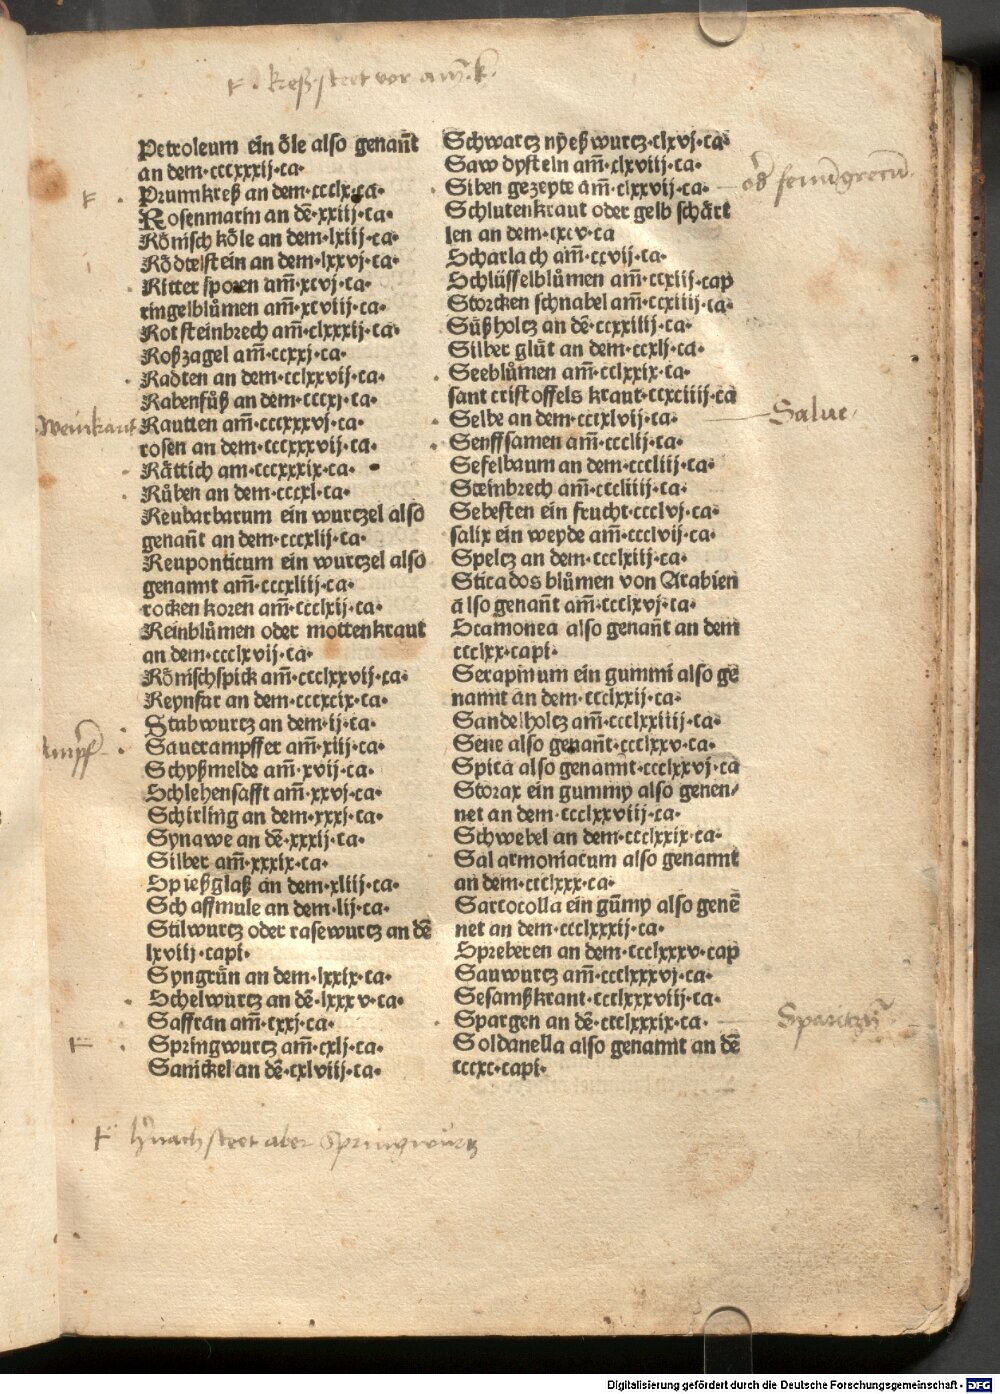 kreß steet vor am k
Petroleum ein öle also genañt
an dem·cccxxxij·ca·
Prunnkreß an dem·ccclx·ca·
Rosenmarin an dē·xxiij·ca·
Römisch köle an dem·lxiij·ca·
Rödtelstein an dem·lxxvj·ca·
Ritter sporen am̃·xcvj·ca·
ringelblůmen am̃·xcviij·ca·
Rot steinbrech am̃·clxxxij·ca·
Roßzagel am̃·ccxxj·ca·
Radten an dem·cclxxvij·ca·
Rabenfůß an dem·cccxj·ca·
Weinkraut
Rautten am̃·cccxxxvj·ca·
rosen an dem·cccxxxvij·ca·
Rättich am·cccxxxix·ca·
Růben an dem·cccxl·ca·
Reubarbarum ein wurczel also
genañt an dem·cccxlij·ca·
Reuponticum ein wurczel also
genannt am̃·cccxliij·ca·
rocken koren am̃·ccclxij·ca·
Reinblůmen oder mottenkraut
an dem·ccclxvij·ca·
Römischspick am̃·ccclxxvij·ca·
Reynfar an dem·cccxcix·ca·
Stabwurcz an dem·ij·ca·
Ampf
Saurampffer am̃·xiij·ca·
Schyßmelde am̃·xvij·ca·
Schlehensafft am̃·xxvj·ca·
Schirling an dem·xxxj·ca·
Synawe an dē·xxxij·ca·
Silber am̃·xxxix·ca·
Spießglaß an dem·xliij·ca·
Schaffmule an dem·lij·ca·
Stilwurcz oder rasewurcz an dē
lxviij·capi·
Syngrün an dem·lxxix·ca·
Schelwurcz an dē·lxxxv·ca·
Saffran am̃·cxxj·ca·
Springwurcz am̃·cxlj·ca·
Sanickel an dē·cxlviij·ca·
Schwarcz nyeßwurcz·clxvj·ca·
Saw dysteln am̃·clxviij·ca·
Siben gezeyte am̃·clxxvij·ca·
od fenugrecum
Schlutenkraut oder gelb schärt
len an dem·cxcv·ca
Scharlach am̃·ccvij·ca·
Schlüsselblůmen am̃·ccxiij·cap
Storcken schnabel am̃·ccxiiij·ca·
Süßholcz an dē·ccxxiiij·ca·
Silber glüt an dem·ccxlj·ca·
Seeblůmen am̃·cclxxix·ca·
sant cristoffels kraut·ccxciiij·ca
Selbe an dem·cccxlvij·ca·
Salue
Senffsamen am̃·cccljj·ca·
Sefelbaum an dem·cccliij·ca·
Steinbrech am̃·cccliiij·ca·
Sebesten ein frucht·ccclvj·ca·
salix ein weyde am̃·ccclvij·ca·
Spelcz an dem·ccclxiij·ca·
Sticados blůmen von Arabien
also genañt am̃·ccclxvj·ca·
Scamonea also genañt an dem
ccclxx·capi·
Serapinum ein gummi also gē
namt an dem·ccclxxij·ca·
Sandelholcz am̃·ccclxxiiij·ca·
Sene also genañt·ccclxxv·ca·
Spica also genannt·ccclxxvj·ca
Storax ein gummy also genen⸗
net an dem·ccclxxviij·ca·
Schwebel an dem·ccclxxix·ca·
Sal armoniacum also genannt
an dem·ccclxxx·ca·
Sarcocolla ein gūmy also genē
net an dem·ccclxxxij·ca·
Spreberen an dem·ccclxxxv·cap
Sauwurcz am̃·ccclxxxvj·ca·
Sesamßkraut·ccclxxxviij·ca·
Spargen an dē·ccclxxxix·ca·
Soldanella also genannt an dē
cccxc·capi·
hernach steet aber Springwurtz
Digitalisierung gefördert durch die Deutsche Forschungsgemeinschaft - DFG